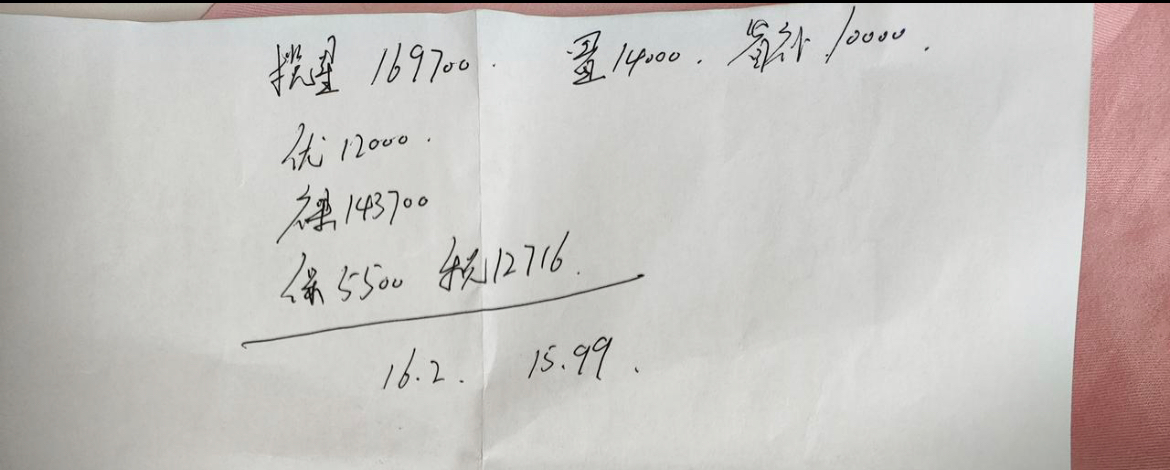 揽星 169700. 置14000. 省补 10000.
优12000.
裸143700
保5500 税12716.
16.2. 15.99.